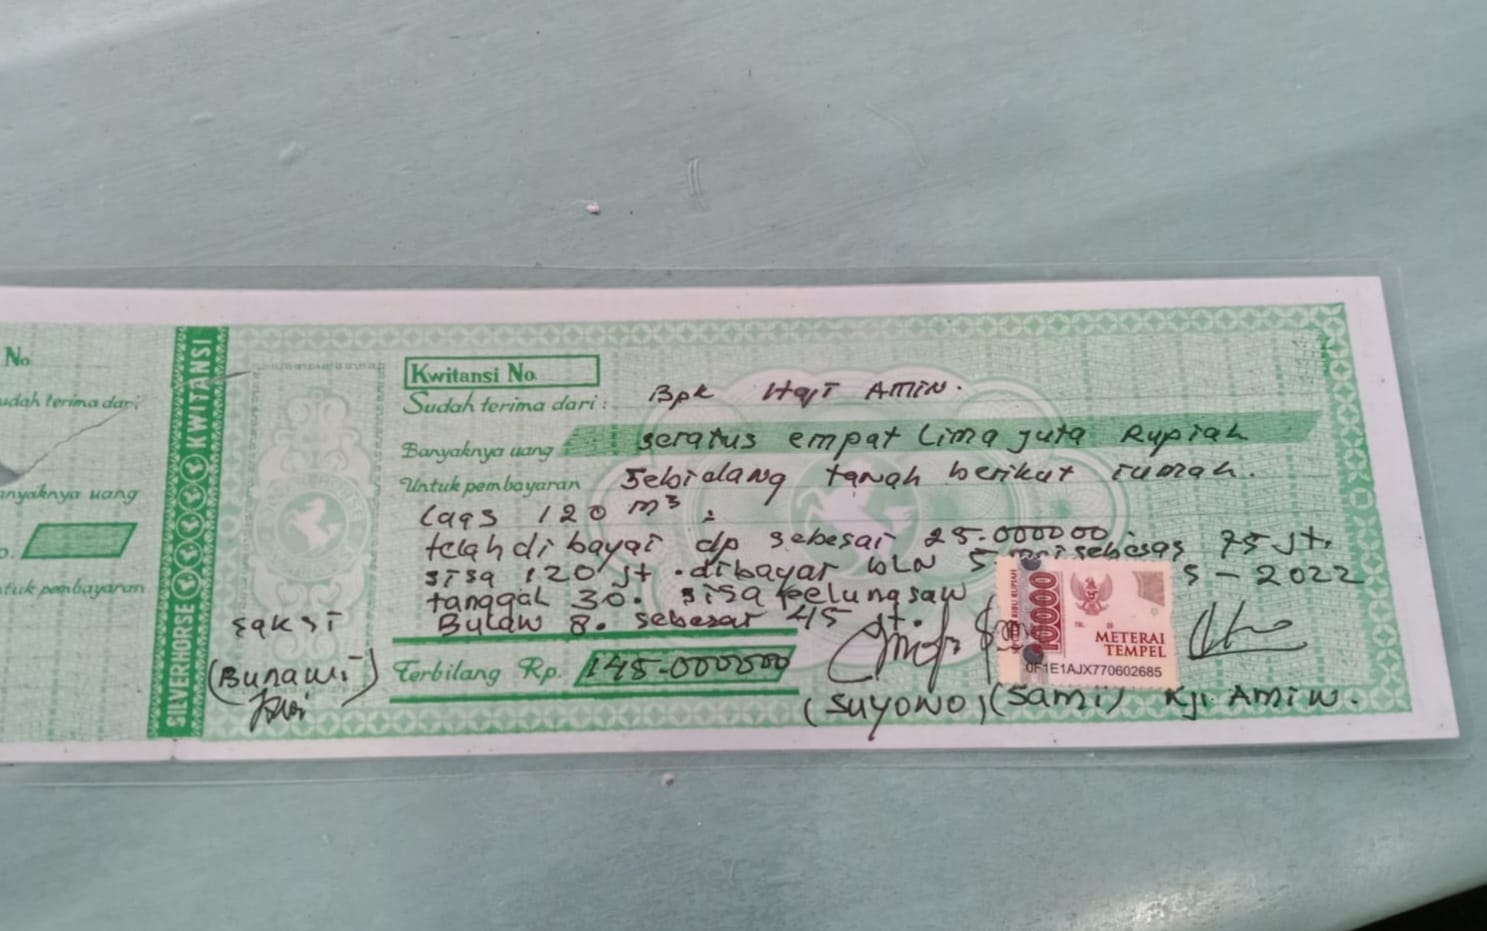 No
Sudah terima dari
Banyaknya uang
Untuk pembayaran
SILVERHORSE KWITANSI
Kwitansi No.
Sudah terima dari: Bpk Haji AMIN.
Banyaknya uang seratus empat Lima juta Rupiah
Untuk pembayaran Sebidang tanah berikut rumah.
Luas 120 m³.
telah dibayar dp sebesar 25.000000
sisa 120 jt. dibayar bLN 5 sebesar 75 jt.
tanggal 30. sisa pelunasan 5-2022
Bulan 8. sebesar 45 jt.
Terbilang Rp. 145.000000
saksi
(Bunawi)
10000
RIBU RUPIAH
METERAI
TEMPEL
0F1E1AJX770602685
(SUYONO) (Sami) Kji AMIN.